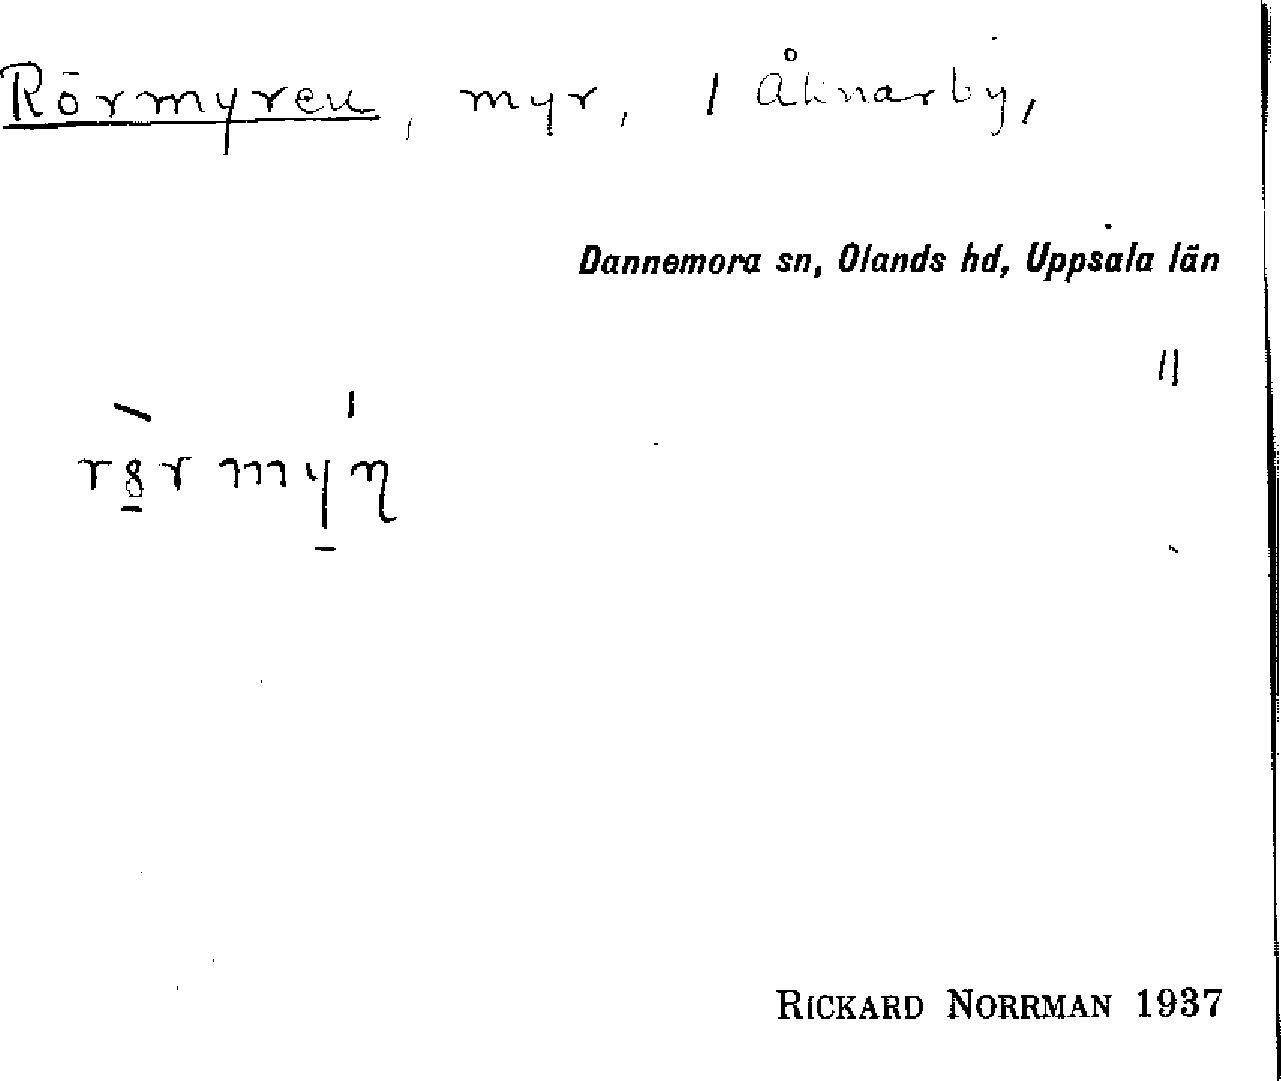 Rörmyren, myr, / Åknarby,
Dannemora sn, Olands hd, Uppsala län
||
RICKARD NORRMAN 1937